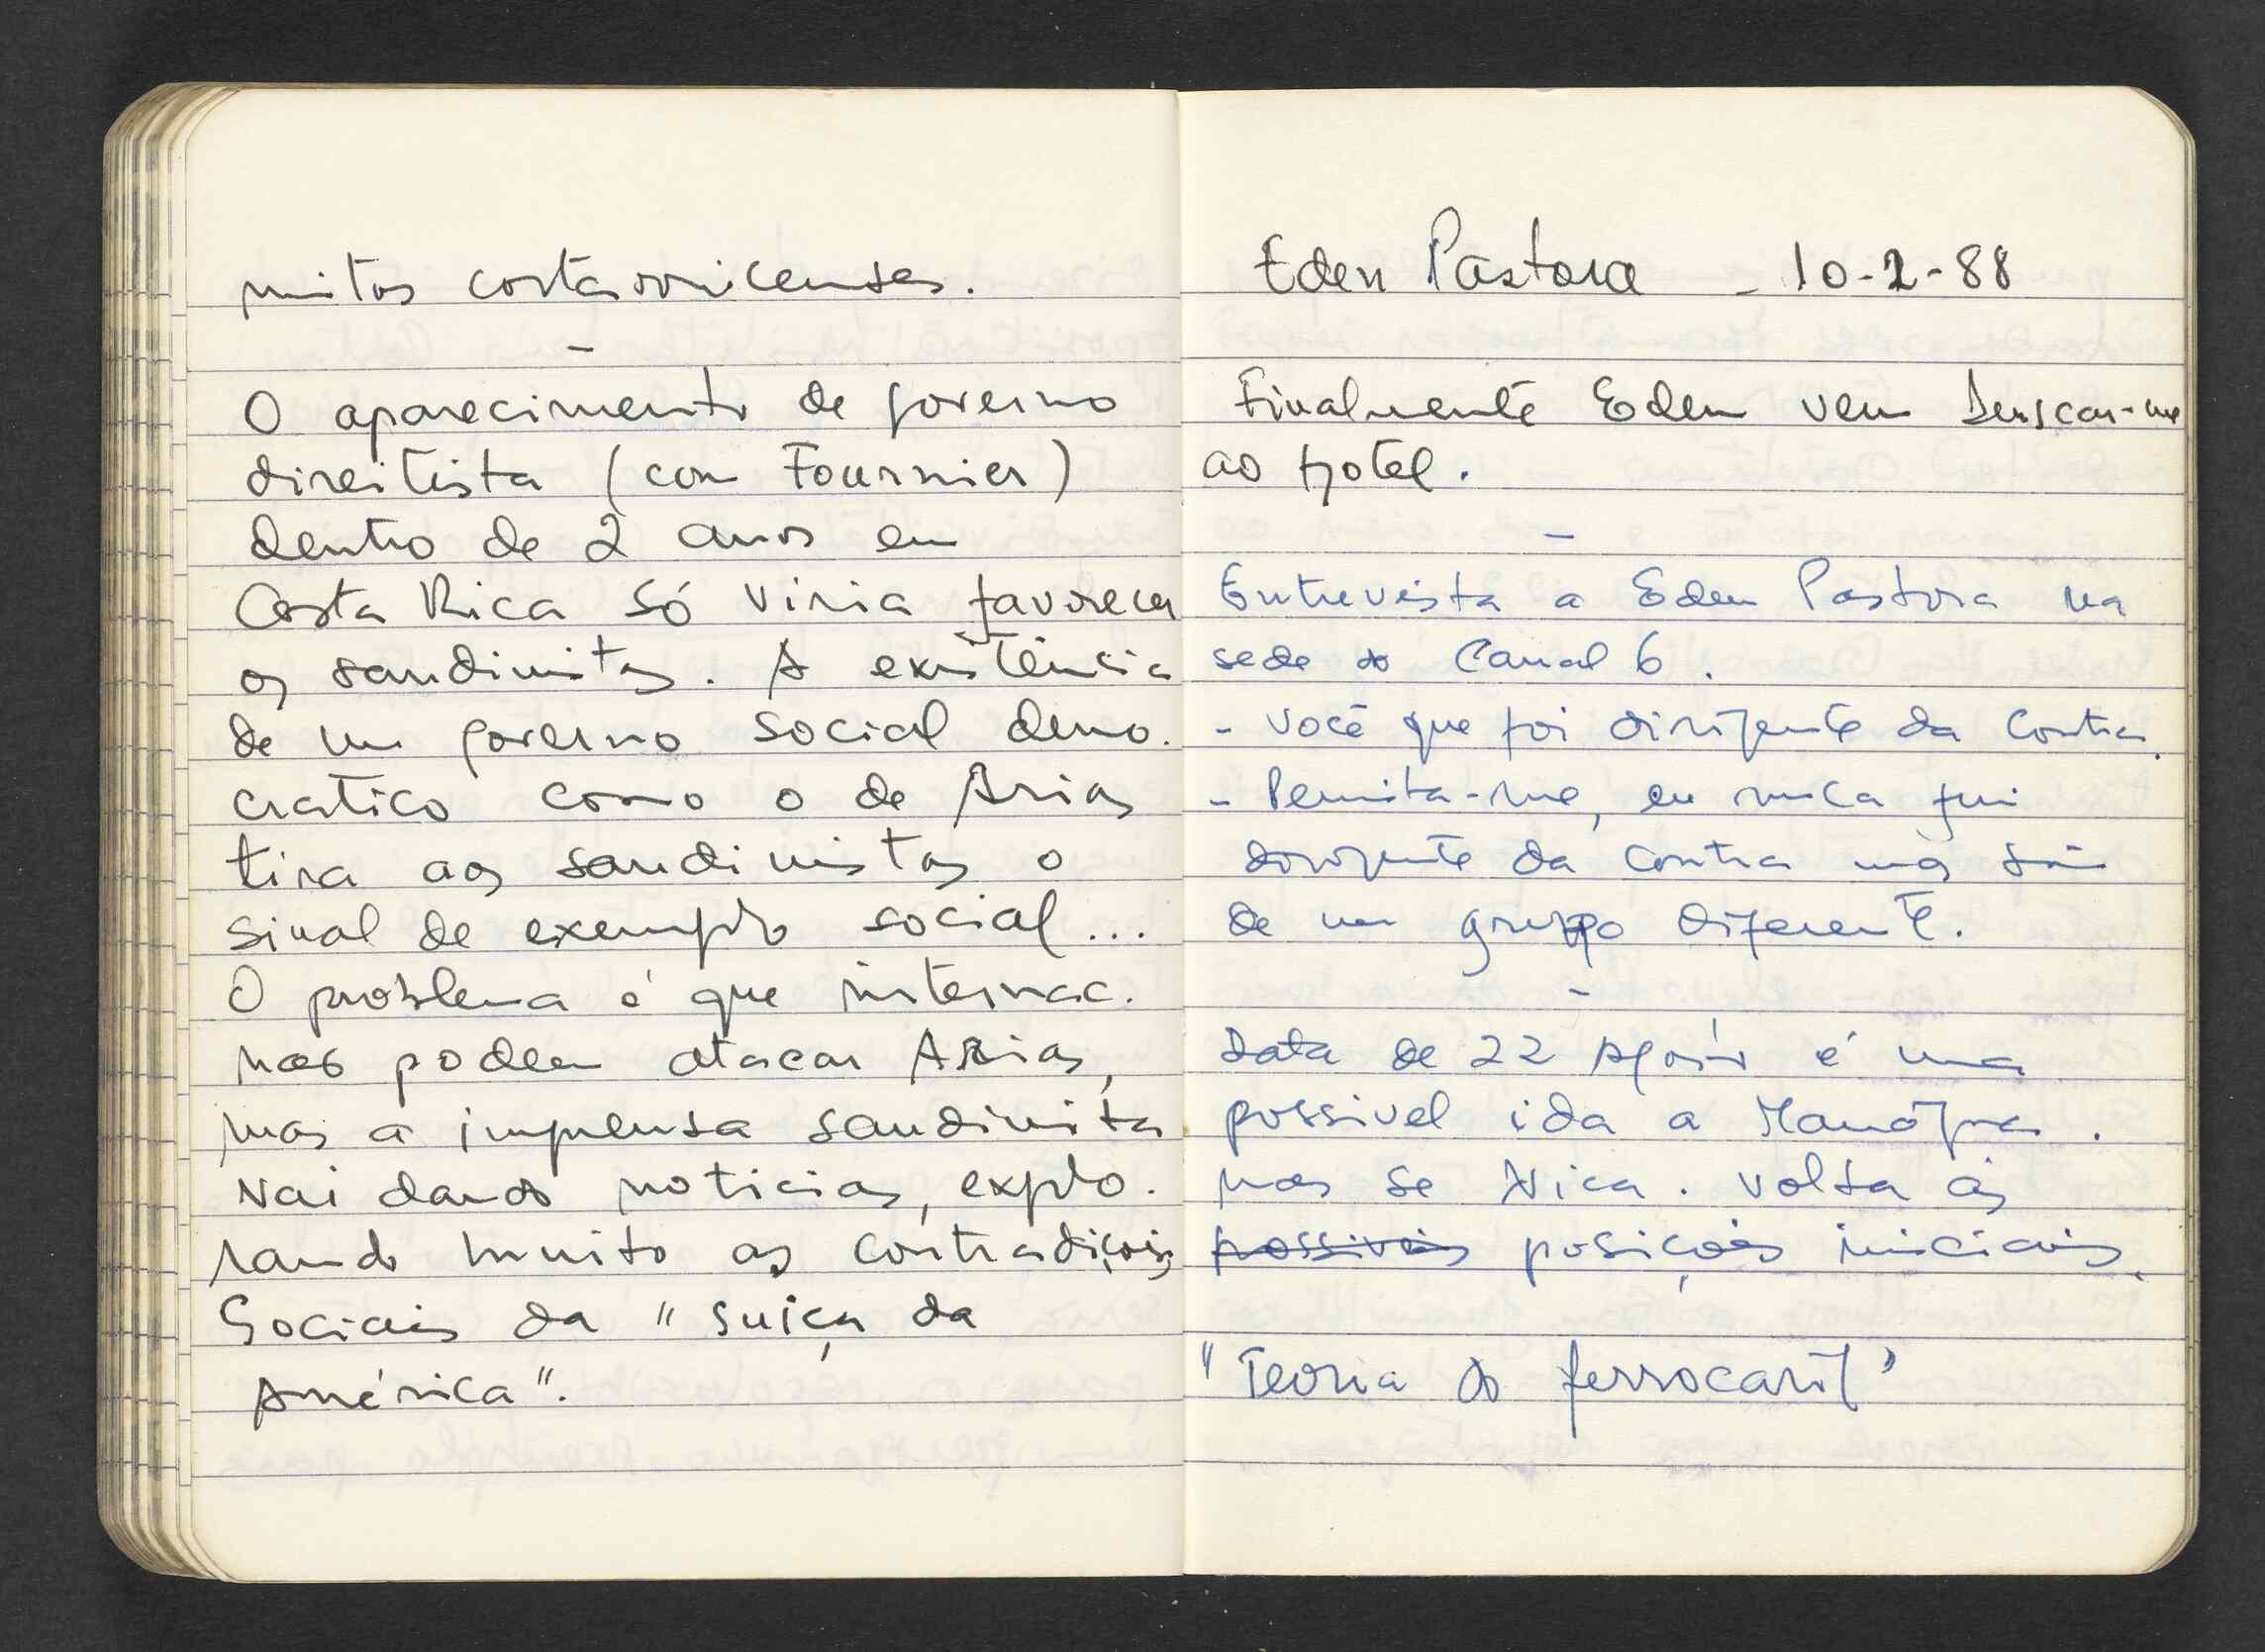 mitos costarricenses.
–
O aparecimento de governo
direitista (com Fournier)
dentro de 2 anos em
Costa Rica só viria favorecer
os sandinistas. A existência
de um governo social demo.
cratico como o de Arias
tira aos sandinistas o
sinal de exemplo social...
O problema é que internac.
nao podem atacar Arias,
mas a imprensa sandinista
vai dando noticias, explo.
rando muito as contradições
Sociais da "suiça da
América".
Eden Pastora - 10-2-88
Finalmente Eden vem buscar-me
ao hotel.
–
Entrevista a Eden Pastora na
sede do Canal 6.
- Você que foi dirigente da Contra.
- Permita-me, eu nunca fui
dirigente da contra mas sim
de um gruppo diferente.
–
Data de 22 Agosto é uma
possivel ida a Manágua.
mas se Nica. volta ás
possiveis posições iniciais.
"Teoria do ferrocaril"